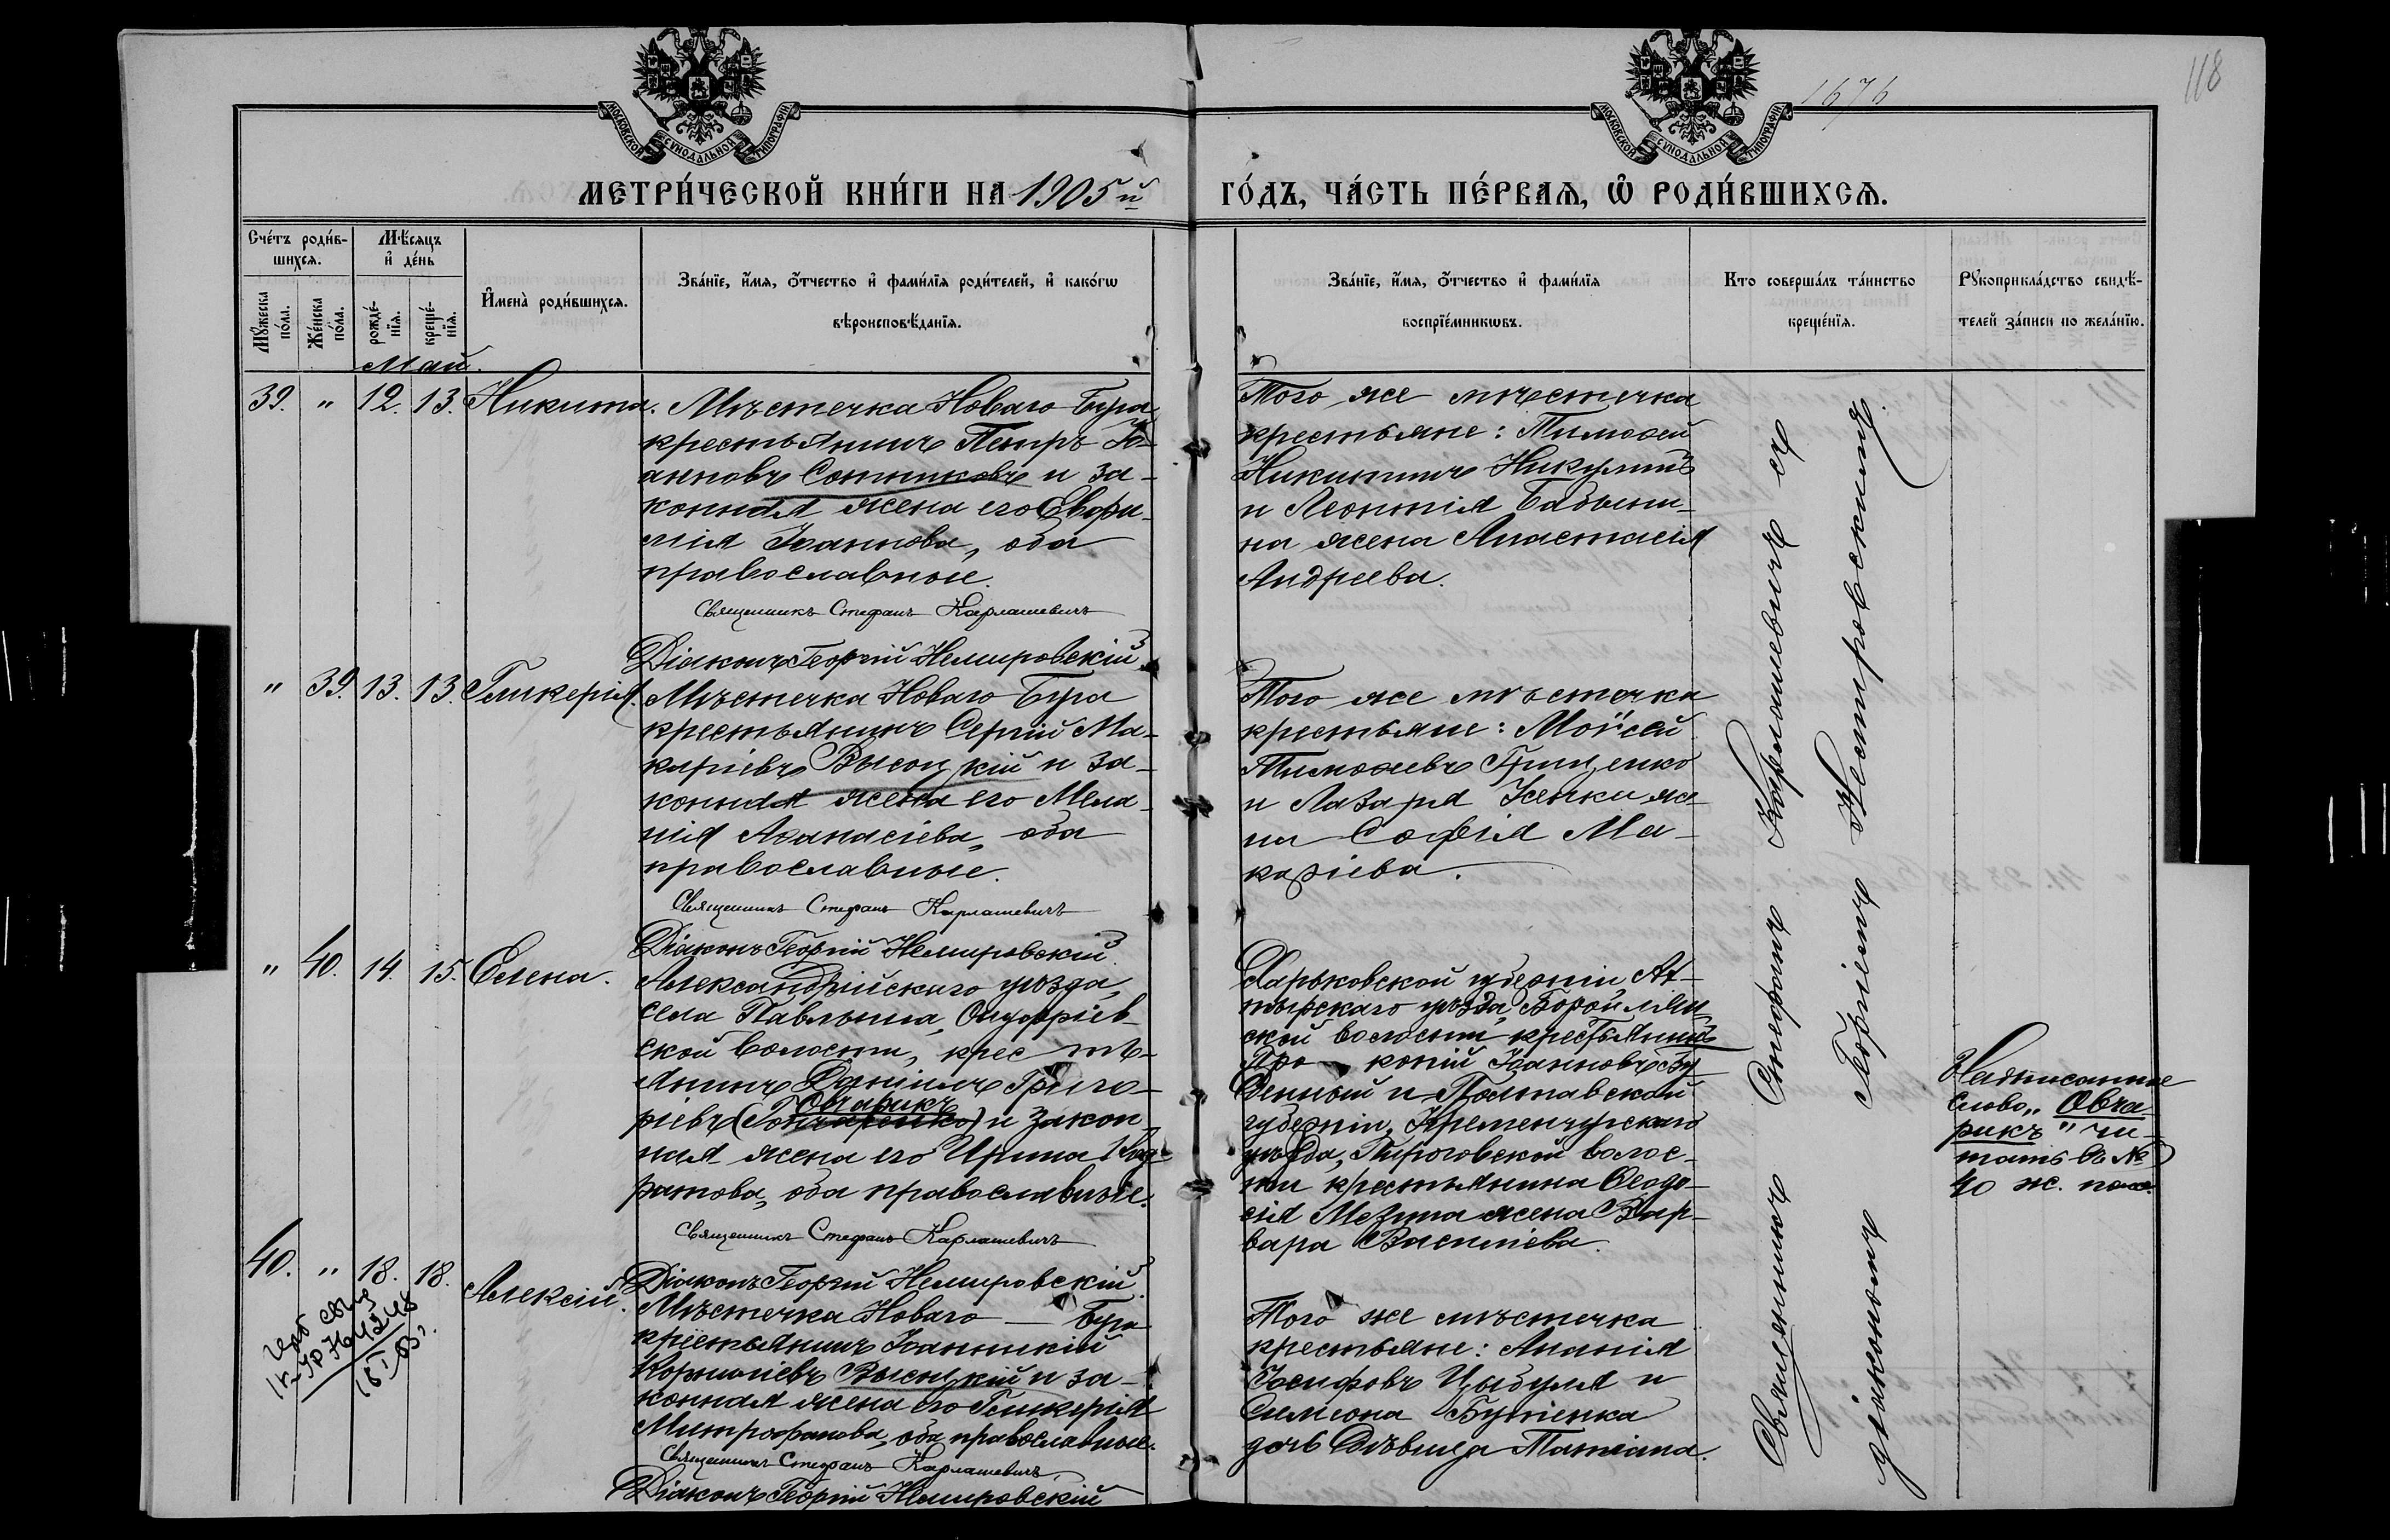 1676
118
МОСКОВСКОЙ СѴНОДАЛЬНОЙ ТИПОГРАФІИ
МОСКОВСКОЙ СѴНОДАЛЬНОЙ ТИПОГРАФІИ
МЕТРИ́ЧЕСКОЙ КНИ́ГИ НА 1905й
ГО́ДЪ, ЧА́СТЬ ПЕ́РВАѦ, Ѡ҆ РОДИ́ВШИХСѦ.
Сче́тъ роди́в-
шихсѧ.
Мꙋ́жеска по́ла.
Же́нска по́ла.
Мѣ́сѧцъ
и҆ де́нь
рожде́-
нїѧ.
креще́-
нїѧ.
И҆мена̀ роди́вшихсѧ.
Зва́нїе, и҆́мѧ, ѻ҆́тчество и҆ фами́лїѧ роди́телей, и҆ како́гѡ
вѣроисповѣ́данїѧ.
Зва́нїе, и҆́мѧ, ѻ҆́тчество и҆ фами́лїѧ
воспрїе́мникѡвъ.
Кто соверша́лъ та́инство
креще́нїѧ.
Рꙋкоприкла́дство свидѣ́-
телей за́писи по жела́нїю.
Май.
39. " 12. 13. Никита.
Мѣстечка Новаго Буга
крестьянинъ Петръ Іо-
анновъ Сотниковъ и за-
конная жена его Евфи-
мія Іоаннова, оба
православные.
Священникъ Стефанъ Карлашевичъ
Діаконъ Георгій Немировскій
Того же мѣстечка
крестьяне: Тимоѳей
Никитинъ Никулинъ
и Леонтія Бабыни-
на жена Анастасія
Андреева.
" 39. 13. 13. Гликерія.
Мѣстечка Новаго Буга
крестьянинъ Сергій Ма-
каріевъ Высоцкій и за-
конная жена его Мела-
нія Аѳанасіева, оба
православные.
Священникъ Стефанъ Карлашевичъ
Діаконъ Георгій Немировскій
Того же мѣстечка
крестьяне: Мойсей
Тимоѳеевъ Гриценко
и Лазаря же-
на Софія Ма-
каріева.
" 40. 14. 15. Елена.
Александрійскаго уѣзда,
села Павлыша, Онуфріев-
ской волости, кресть-
янинъ Даніилъ Григо-
Овчарикъ
ріевъ (Гончаренко) и закон-
ная жена его Ирина Код-
ратова, оба православные.
Священникъ Стефанъ Карлашевичъ
Діаконъ Георгій Немировскій
Харьковской губерніи, Ах-
тырскаго уѣзда, Боромлян-
ской волости крестьянинъ
Про-копій Іоанновъ Бу-
денный и Полтавской
губерніи, Кременчугскаго
уѣзда, Пироговской волос-
ти крестьянина Ѳеодо-
сія Мезина жена Вар-
вара Василіева.
Надписанное
слово „Овча-
рикъ" чи-
тать въ №
40 ж. пола.
40. " 18. 18. Алексій.
Мѣстечка Новаго Буга
крестьянинъ Іоанникій
Корниліевъ Высоцкій и за-
конная жена его Гликерія
Митрофанова, оба православные.
Священникъ Стефанъ Карлашевичъ
Діаконъ Георгій Немировскій
Того же мѣстечка
крестьяне: Ананія
Іосифовъ Цыбуля и
Симеона Бутенка
дочь дѣвица Татіана.
Священникъ Стефанъ Карлашевичъ съ
діакономъ Георгіемъ